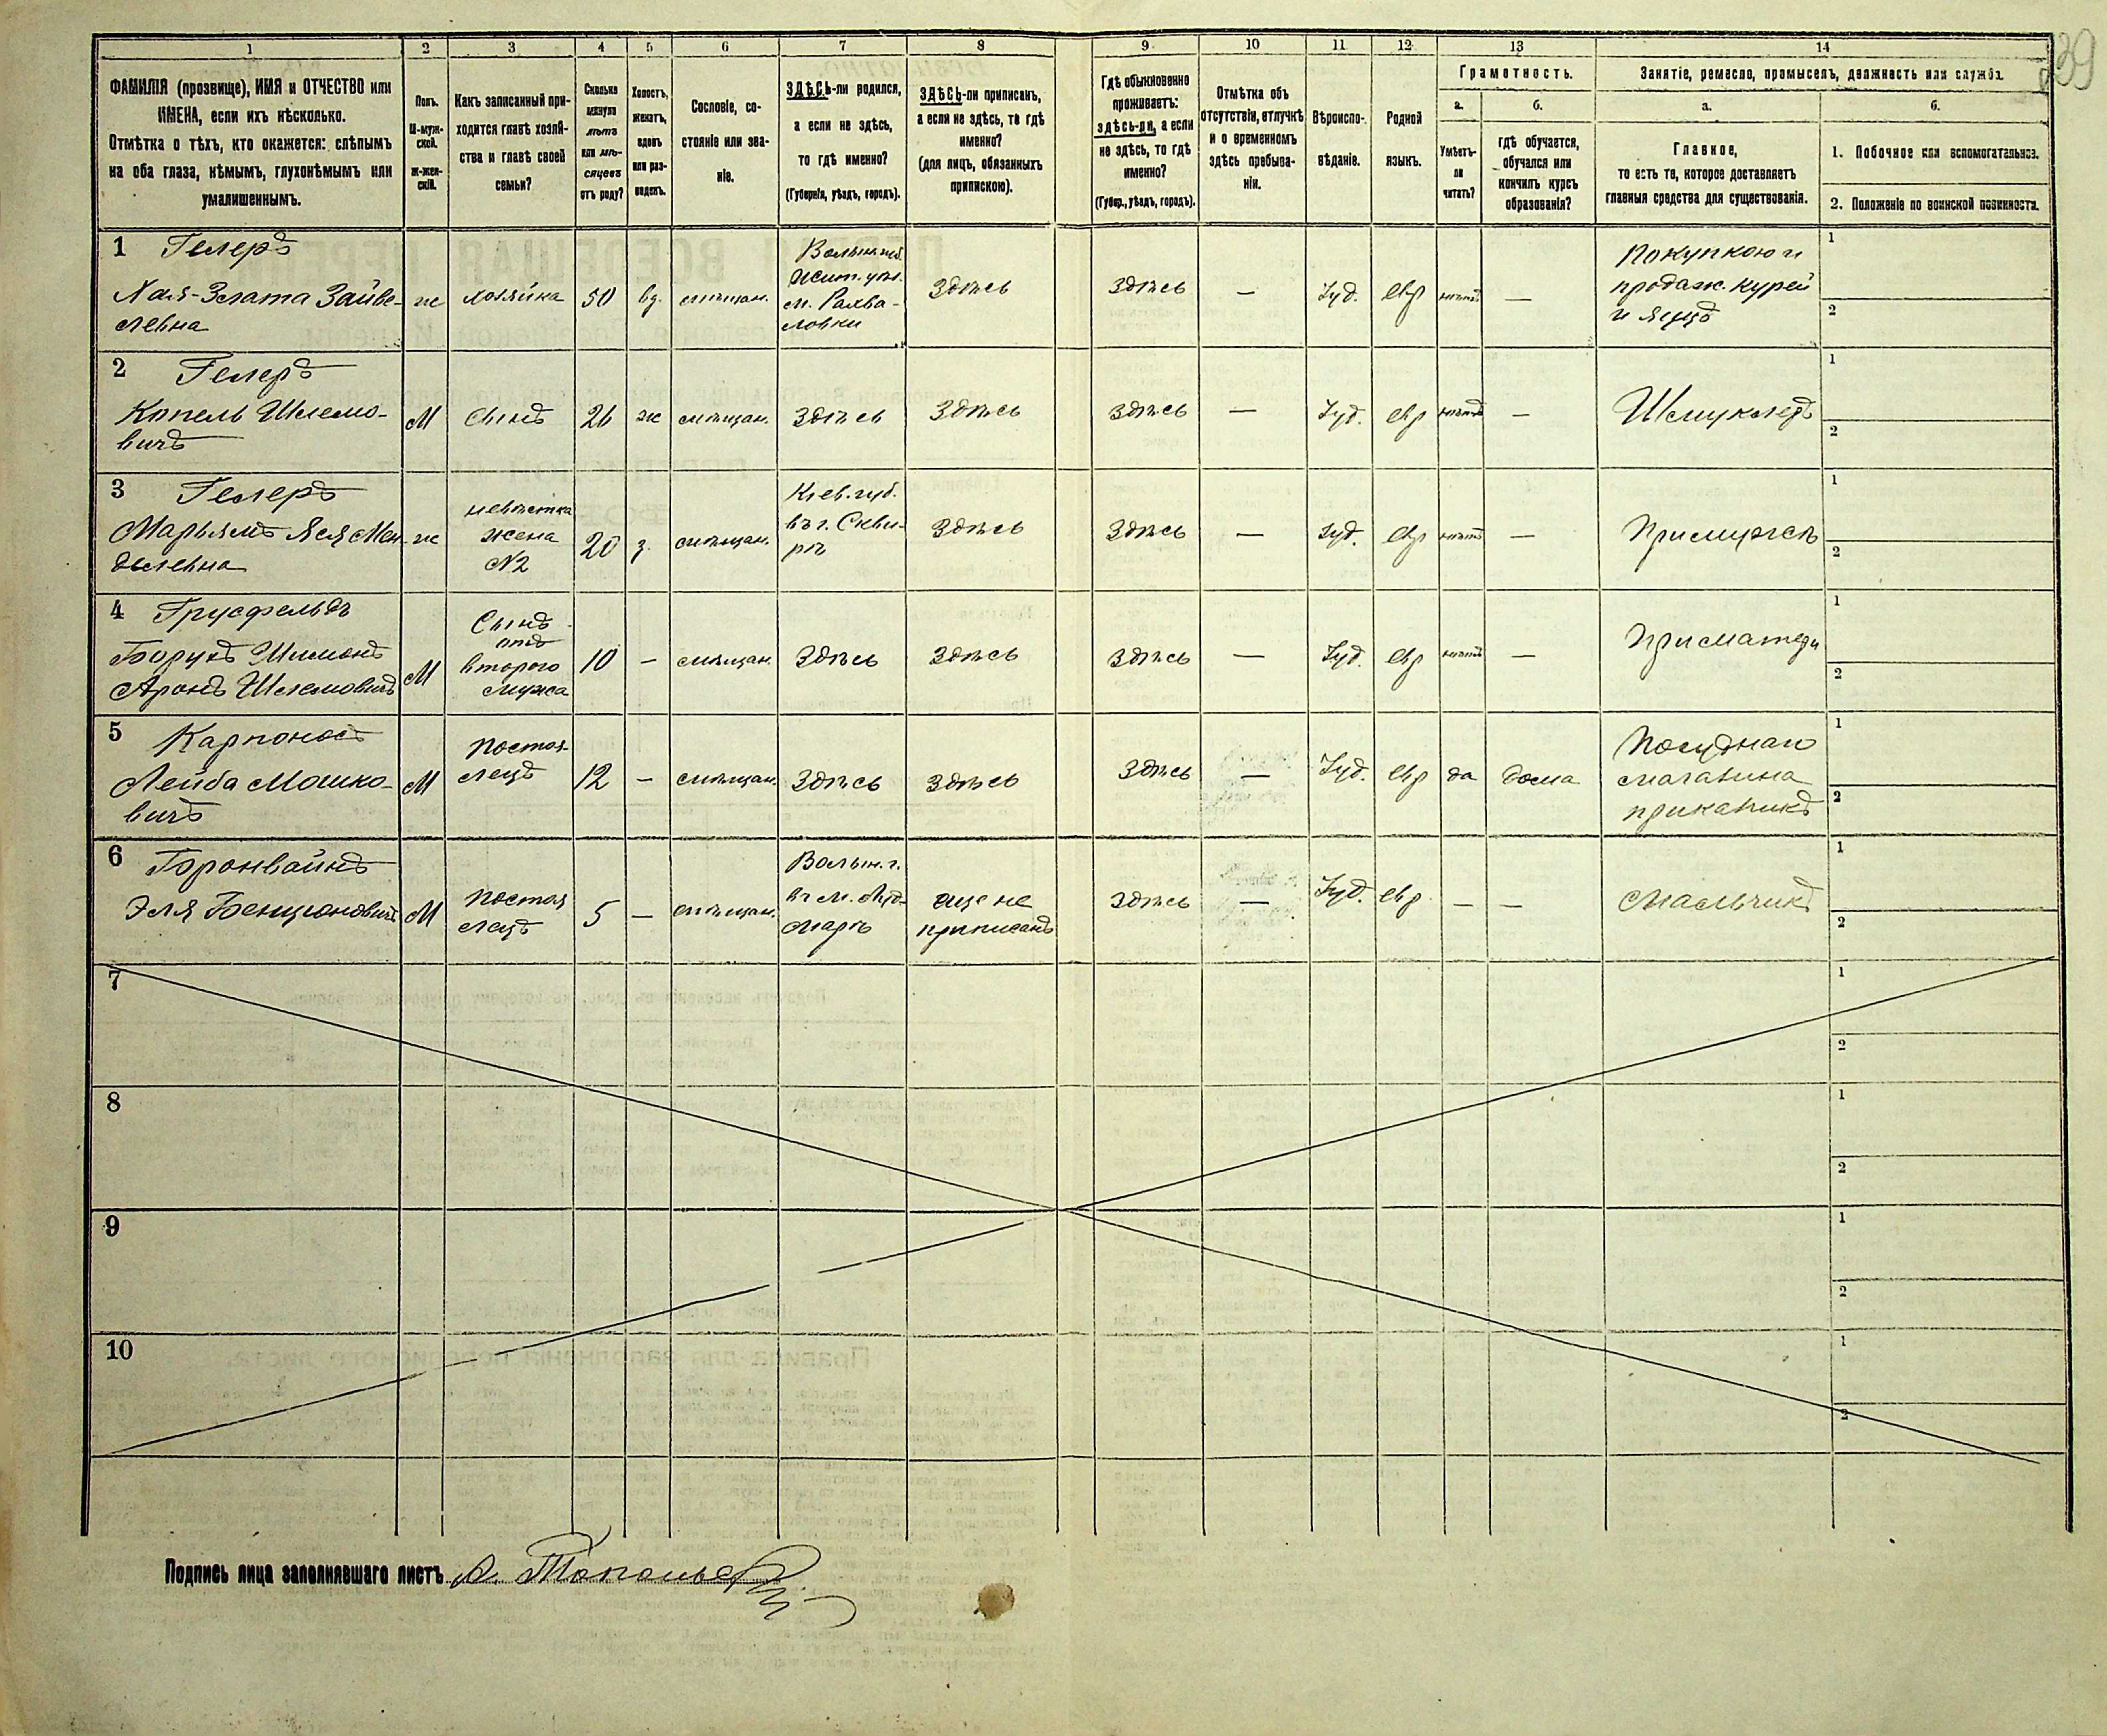 39
1 2 3 4 5 6 7 8 9 10 11 12 13 14
ФАМИЛІЯ (прозвище), ИМЯ и ОТЧЕСТВО или
ИМЕНА, если ихъ нѣсколько.
Отмѣтка о тѣхъ, кто окажется: слѣпымъ
на оба глаза, нѣмымъ, глухонѣмымъ или
умалишеннымъ.
Полъ.
М-муж-
ской.
Ж-жен-
скій.
Какъ записанный при-
ходится главѣ хозяй-
ства и главѣ своей
семьи?
Сколько
минуло
лѣтъ
или мѣ-
сяцевъ
отъ роду?
Холостъ,
женатъ,
вдовъ
или раз-
веденъ.
Сословіе, со-
стояніе или зва-
ніе.
ЗДѢСЬ-ли родился,
а если не здѣсь,
то гдѣ именно?
(Губернія, уѣздъ, городъ).
ЗДѢСЬ-ли приписанъ,
а если не здѣсь, то гдѣ
именно?
(для лицъ, обязанныхъ
припискою).
Гдѣ обыкновенно
проживаетъ:
здѣсь-ли, а если
не здѣсь, то гдѣ
именно?
(Губер., уѣздъ, городъ).
Отмѣтка объ
отсутствіи, отлучкѣ
и о временномъ
здѣсь пребыва-
ніи.
Вѣроиспо-
вѣданіе.
Родной
языкъ.
Грамотность.
а.
Умѣетъ-
ли
читать?
б.
гдѣ обучается,
обучался или
кончилъ курсъ
образованія?
Занятіе, ремесло, промыселъ, должность или служба.
а.
Главное,
то есть то, которое доставляетъ
главныя средства для существованія.
б.
1. Побочное или вспомогательное.
2. Положеніе по воинской повинности.
1 Гелеръ
Хая-Злата Зайве-
левна
ж
хозяйка
50
вд.
мѣщан.
Волын. губ.
Жит. уѣз.
м.
ловки
Здѣсь
Здѣсь
—
Іуд.
евр
нѣтъ
—
Покупкою и
продаж. курей
и яицъ
1
2
2 Гелеръ
Копель Шлемо-
вичъ
М
Сынъ
26
ж
мѣщан.
Здѣсь
Здѣсь
Здѣсь
—
Іуд.
евр
нѣтъ
—
Шмуклеръ
1
2
3 Гелеръ
Марьямъ Яся Мен-
делевна
ж
невѣстка
жена
№2
20
з.
мѣщан.
Кіев. губ.
въ г. Скви-
рѣ
Здѣсь
Здѣсь
—
Іуд.
евр
нѣтъ
—
При мужѣ
1
2
4 Грусфельдъ
Борухъ Шимонъ
Аронъ Шлемовичъ
М
Сынъ
отъ
второго
мужа
10
—
мѣщан.
Здѣсь
Здѣсь
Здѣсь
—
Іуд.
евр
нѣтъ
—
При матери
1
2
5 Карпоносъ
Лейба Мошко-
вичъ
М
Постоя-
лецъ
12
—
мѣщан.
Здѣсь
Здѣсь
Здѣсь
—
Іуд.
евр
да
дома
Посуднаго
магазина
приказчикъ
1
2
6 Горонвайнъ
Эля Бенціоновичъ
М
Постоя
лецъ
5
—
мѣщан.
Волын. г.
въ м.
еще не
приписанъ
Здѣсь
—
Іуд.
евр.
—
—
Мальчикъ
1
2
7
1
2
8
1
2
9
1
2
10
1
2
Подпись лица заполнявшаго листъ